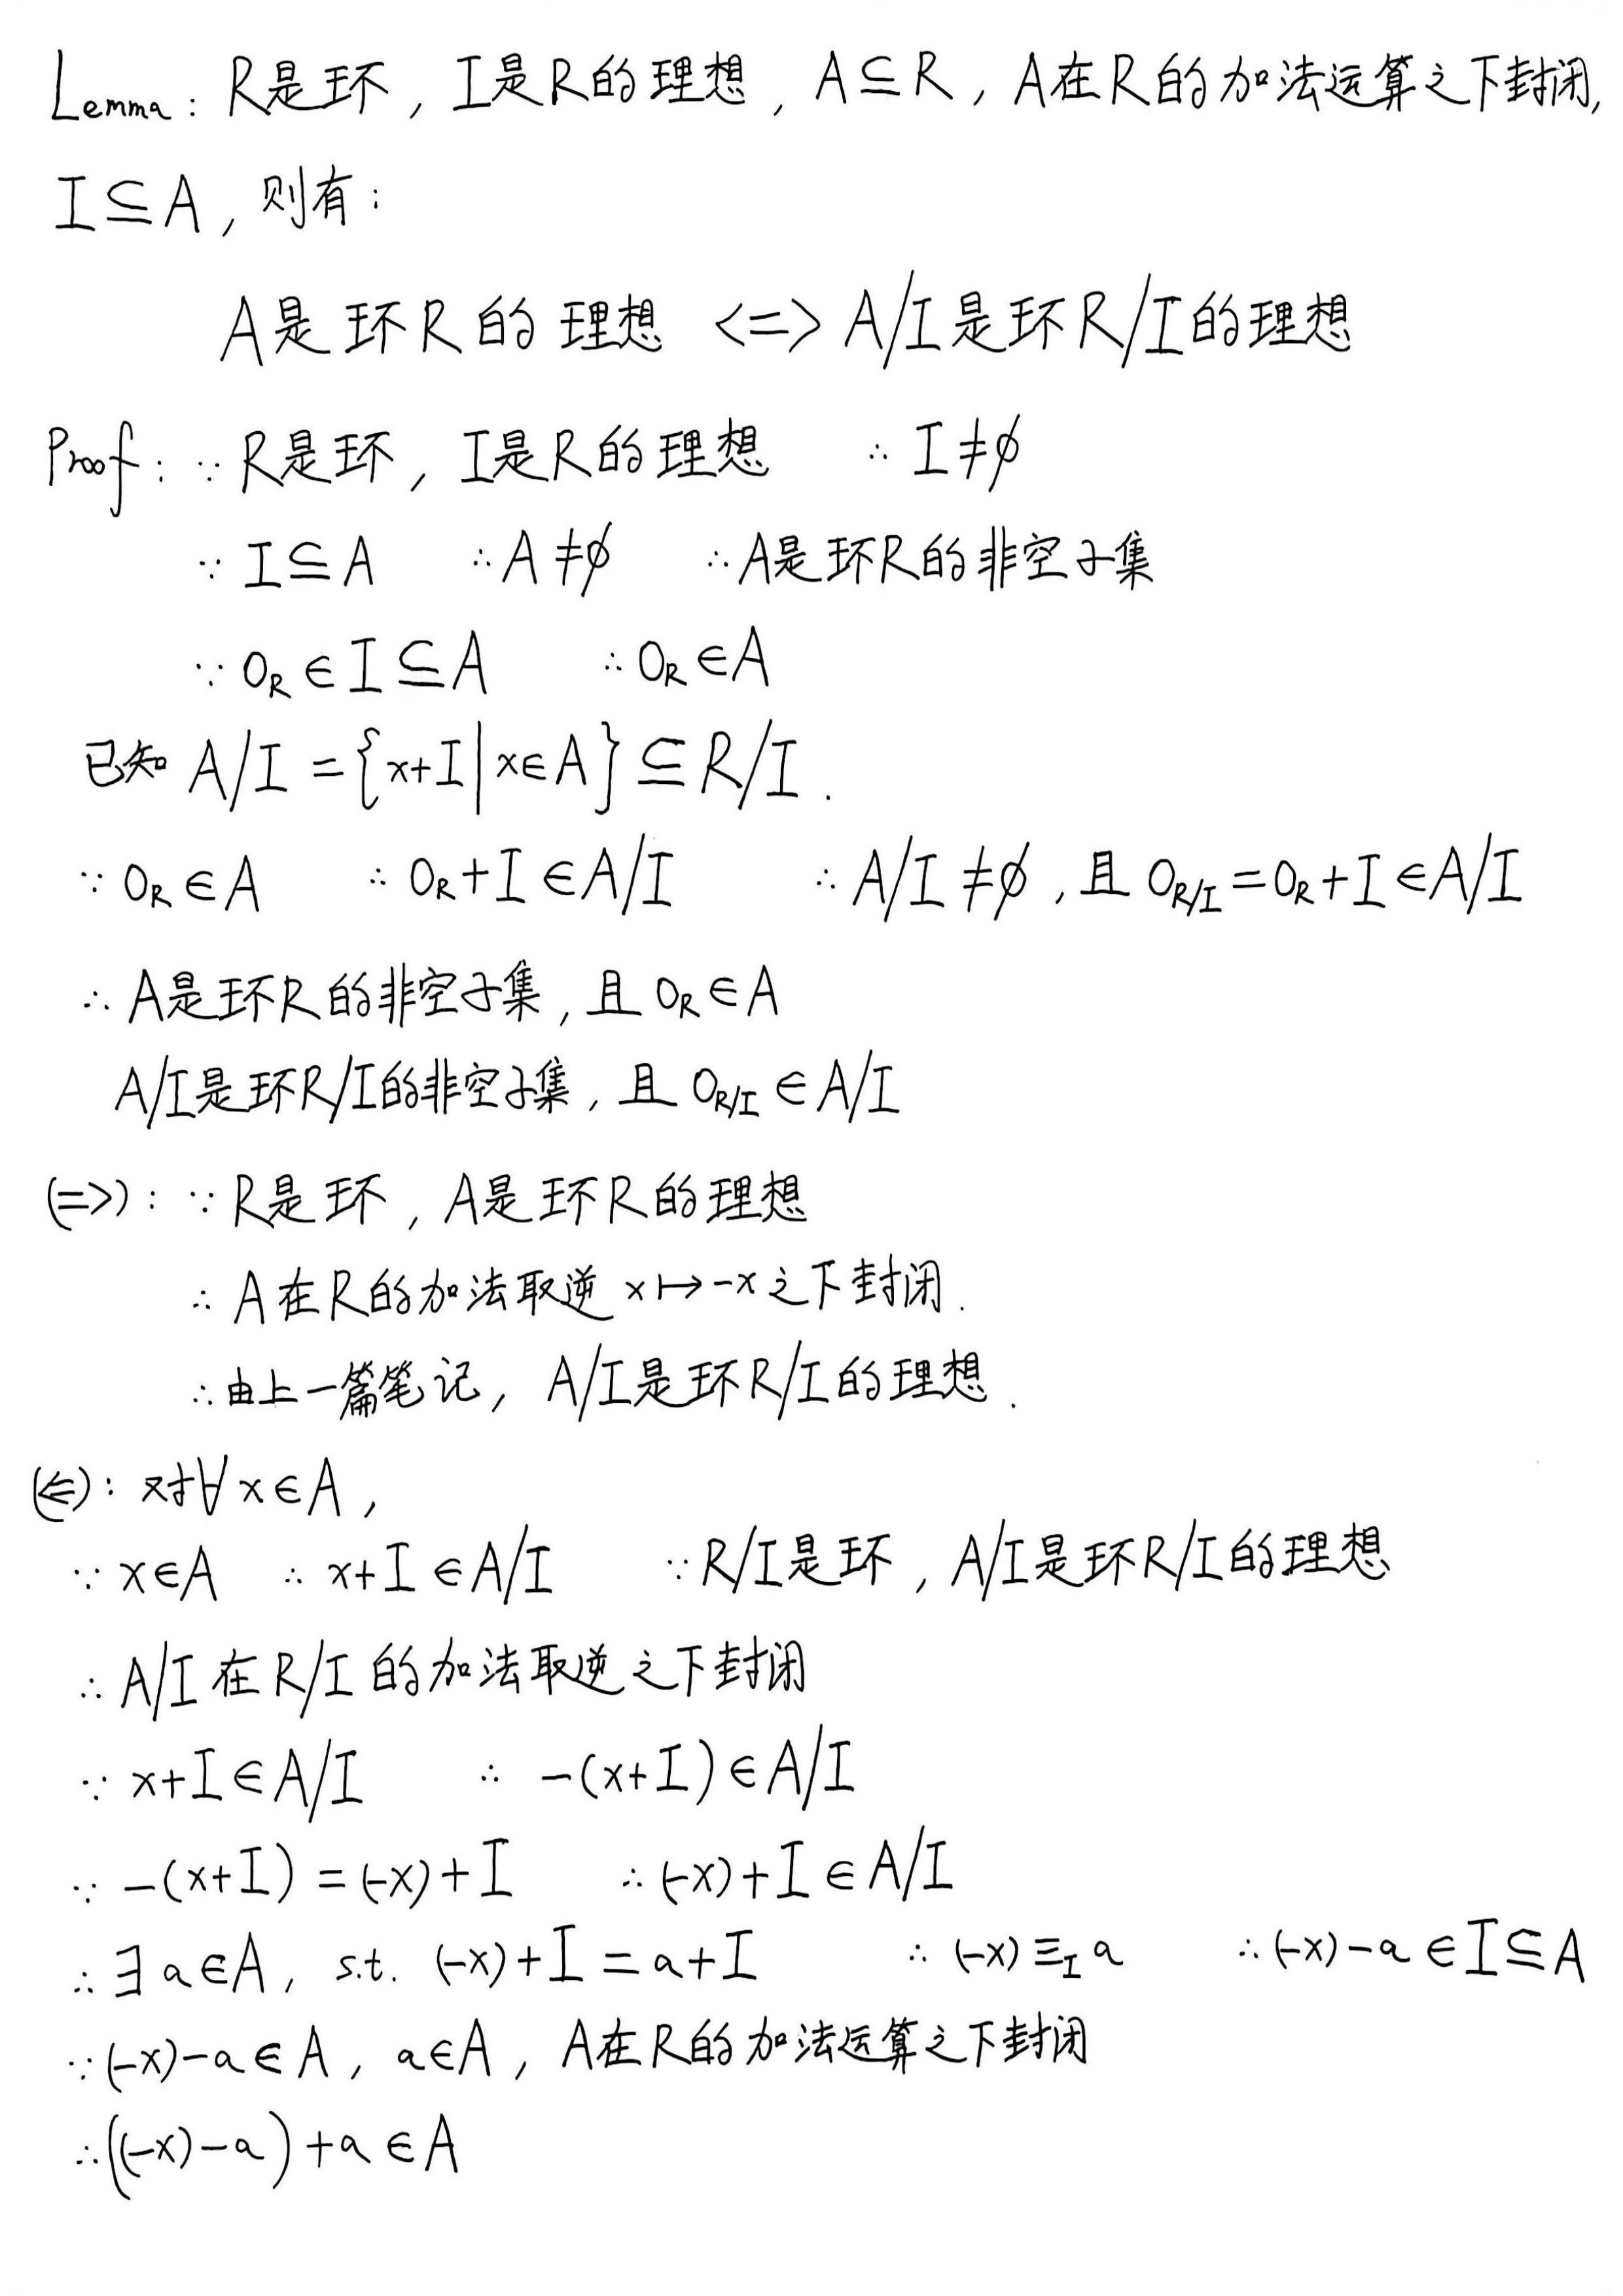 Lemma: R是环, I是R的理想, A⊆R, A在R的加法运算之下封闭,
I⊆A, 则有:
A是环R的理想 <=> A/I是环R/I的理想
Proof: ∵ R是环, I是R的理想 ∴ I≠∅
∵ I⊆A ∴ A≠∅ ∴ A是环R的非空子集
∵ 0_R ∈ I ⊆ A ∴ 0_R ∈ A
已知 A/I = {x+I | x∈A} ⊆ R/I.
∵ 0_R ∈ A ∴ 0_R+I ∈ A/I ∴ A/I ≠ ∅, 且 0_{R/I} = 0_R+I ∈ A/I
∴ A是环R的非空子集, 且 0_R ∈ A
A/I是环R/I的非空子集, 且 0_{R/I} ∈ A/I
(=>): ∵ R是环, A是环R的理想
∴ A在R的加法取逆 x↦-x之下封闭.
∴ 由上一篇笔记, A/I是环R/I的理想.
(<=): 对∀x∈A,
∵ x∈A ∴ x+I ∈ A/I ∵ R/I是环, A/I是环R/I的理想
∴ A/I在R/I的加法取逆之下封闭
∵ x+I ∈ A/I ∴ -(x+I) ∈ A/I
∵ -(x+I) = (-x)+I ∴ (-x)+I ∈ A/I
∴ ∃a∈A, s.t. (-x)+I = a+I ∴ (-x) ≡_I a ∴ (-x)-a ∈ I ⊆ A
∵ (-x)-a ∈ A, a∈A, A在R的加法运算之下封闭
∴ ((-x)-a)+a ∈ A